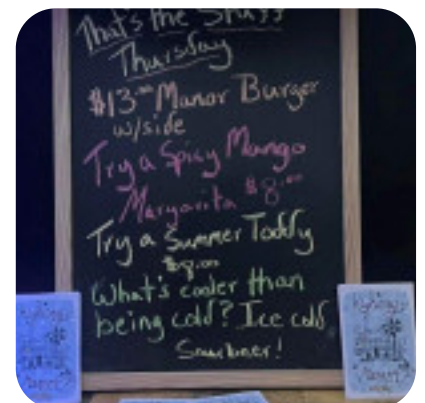 That's the Stuff
Thursday
$13.00 Manor Burger
w/side
Try a Spicy Mango
Margarita $8.00
Try a Summer Toddy
$8.00
What's cooler than
being cold? Ice cold